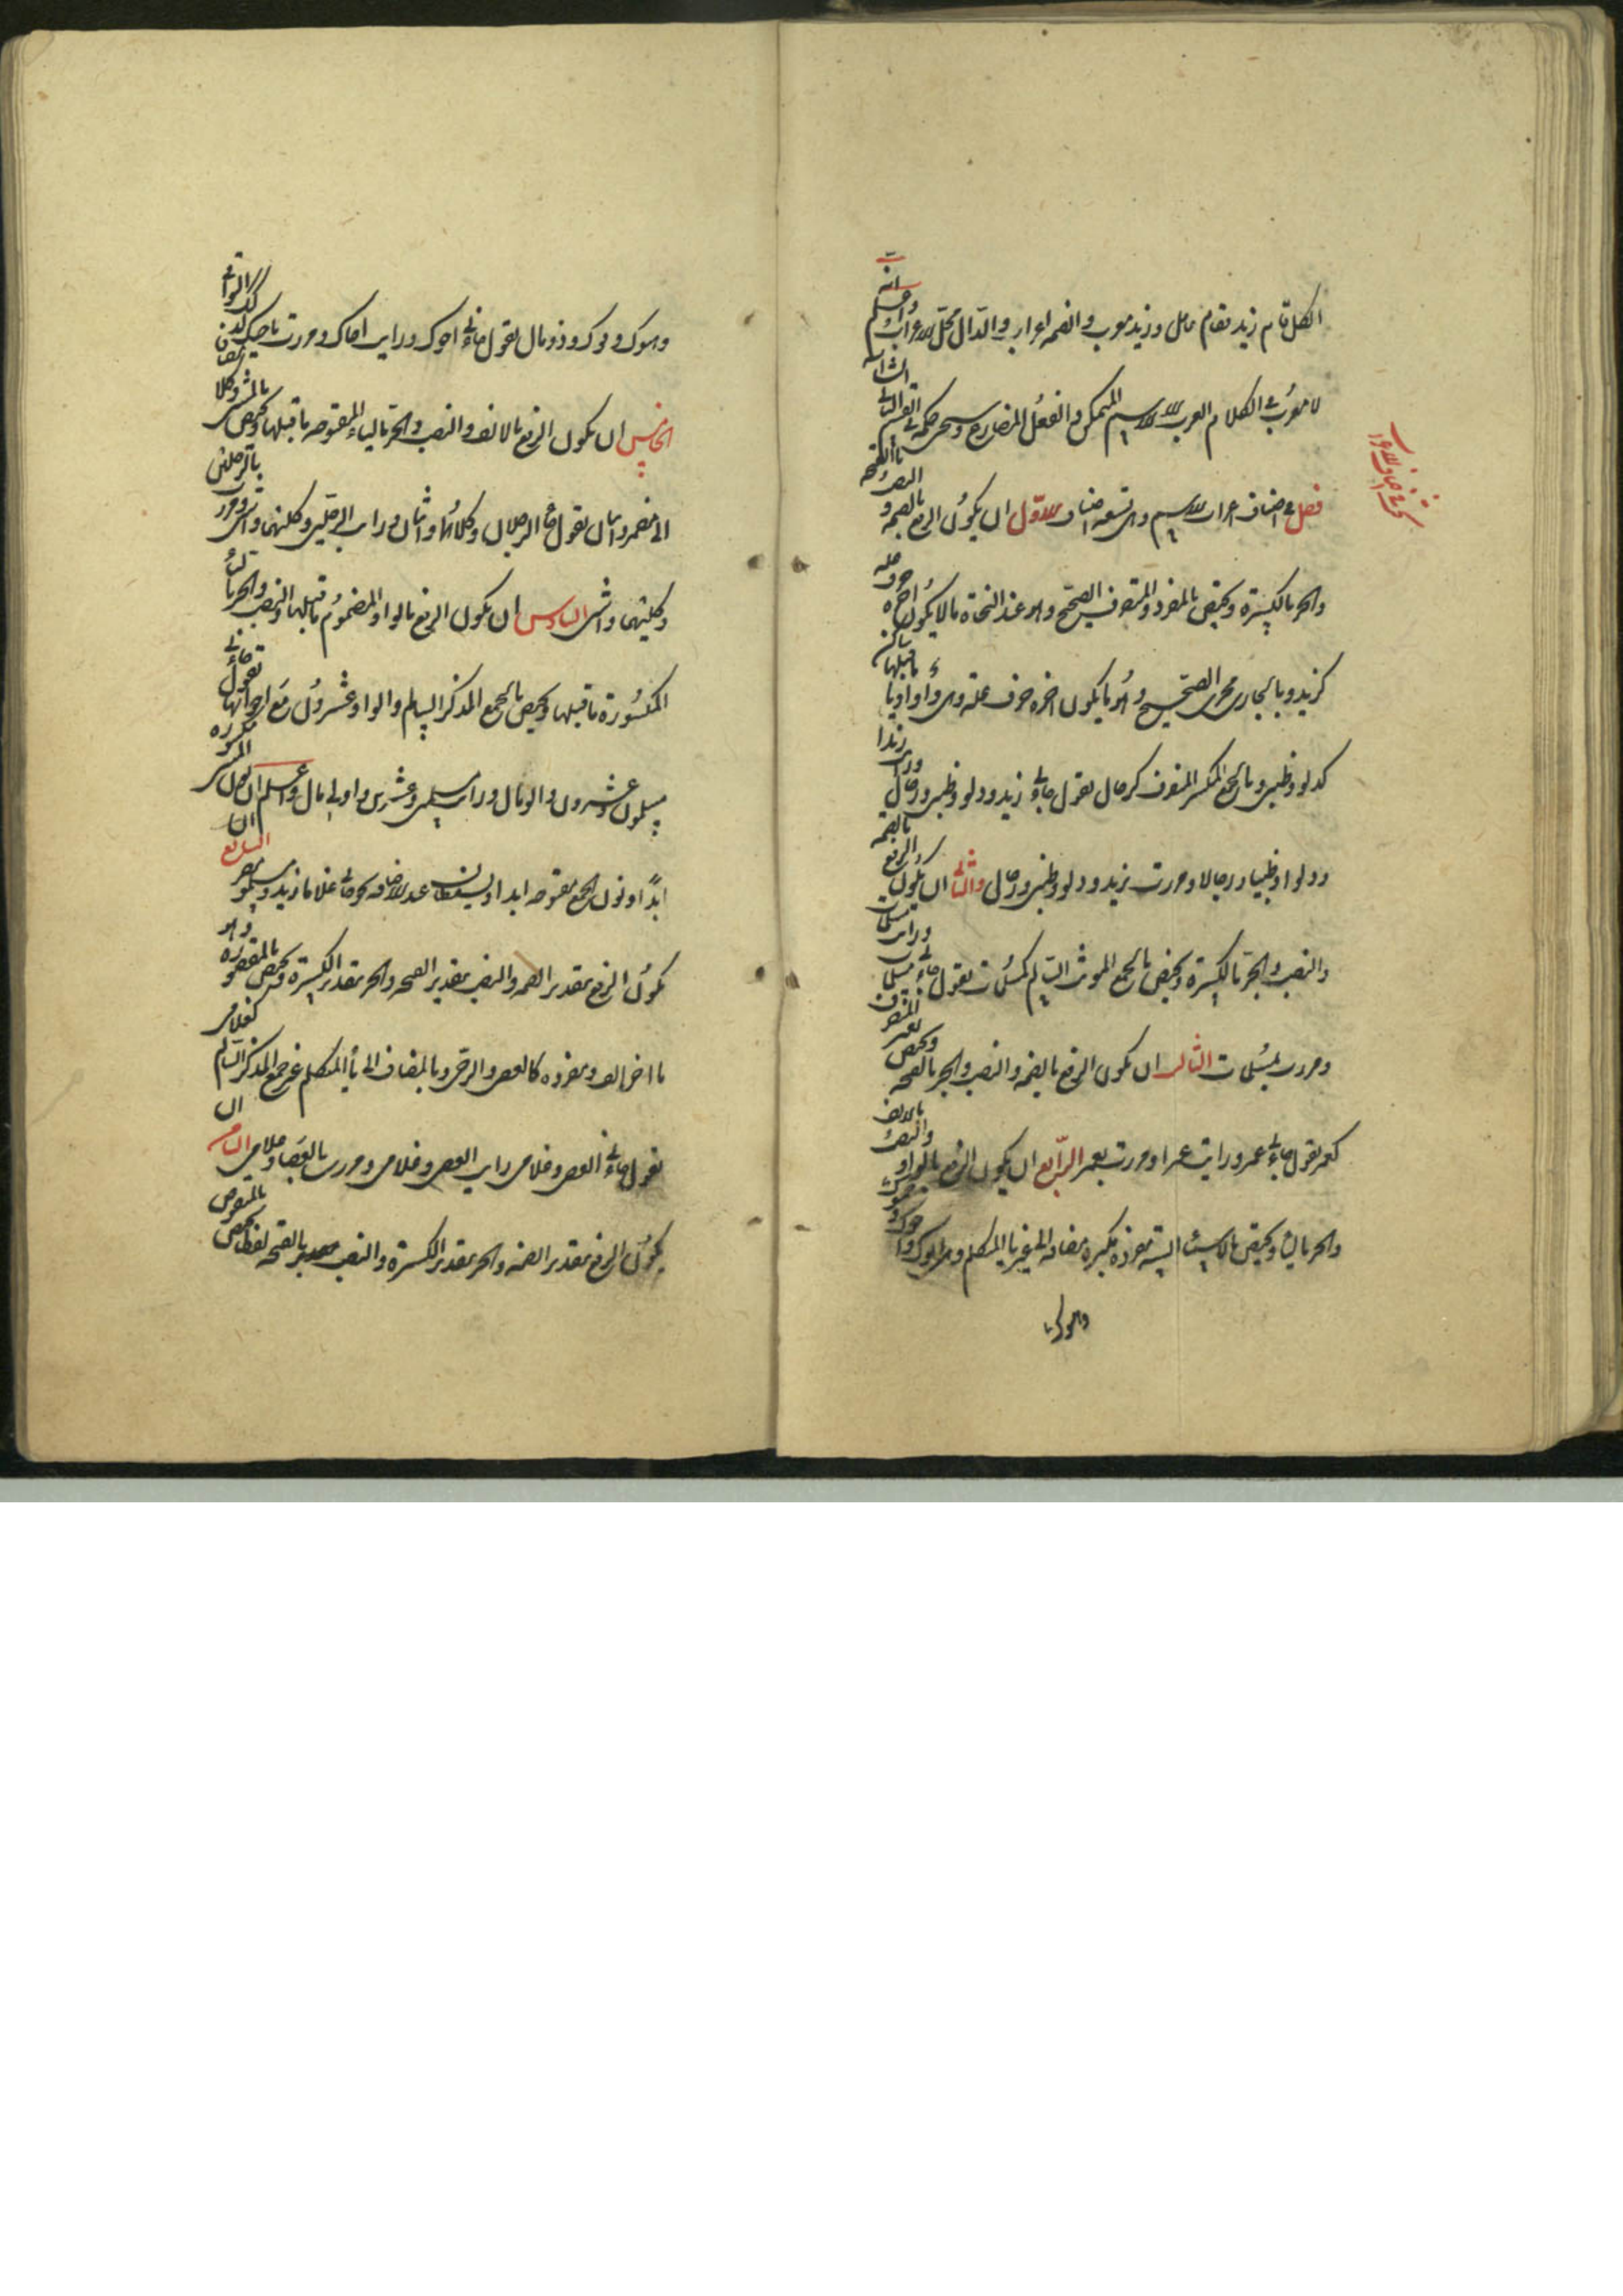 الكل قام زيد فقام عامل وزيد معرب والضمه اعراب والدال محل الاعراب واعلم انه
لا معرب في الكلام العرب الا الاسم المتمكن والفعل المضارع وسيجئ حكمه في القسم الثاني
فصل في اصناف اعراب الاسم وهي تسعه اصناف الاول ان يكون الرفع بالضمه و النصب بالفتحه
والجر بالكسرة ويختص بالمفرد المنصرف الصحيح وهو عند النحاة ما لا يكون اخره حرف عله
كزيد وبالجاري مجرى الصحيح وهو ما يكون اخره حرف علة وهي واو او يا ما قبلها ساكن
كدلو وظبي وبالجمع المكسر المنصرف كرجال تقول جاءني زيد ودلو وظبي ورجال ورايت زيدا
ودلوا وظبيا ورجالا ومررت بزيد ودلو وظبي ورجال والثاني ان يكون الرفع بالضمه
والنصب والجر بالكسرة ويختص بالجمع المونث السالم كمسلمات تقول جاءني مسلمات ورايت مسلمات
ومررت بمسلمات الثالث ان يكون الرفع بالضمه والنصب والجر بالفتحه ويختص بغير المنصرف
كعمر تقول جاءني عمر ورايت عمر او مررت بعمر الرابع ان يكون الرفع بالواو والنصب بالالف
والجر باليا ويختص بالاسماء الستة مفردة مكبرة مضافه الى غير يا المتكلم وهي ابوك واخوك و
وهنوك
وهنوك وفوك وذو مال تقول جاءني اخوك ورايت اخاك ومررت باخيك وكذا البواقي
الخامس ان يكون الرفع بالالف والنصب والجر بالياء المفتوحه ما قبلها ويختص بالمثنى وكلا مضافا
الى مضمر واثنان تقول جاء الرجلان وكلاهما واثنان ورايت الرجلين وكليهما واثنين ومررت بالرجلين
وكليهما واثنين السادس ان يكون الرفع بالواو المضموم ما قبلها والنصب والجر بالياء
المكسورة ما قبلها ويختص بالجمع المذكر السالم والواو عشرون مع اخواتها تقول جاءني
مسلمون وعشرون والو مال ورايت مسلمين وعشرين واولي مال واعلم ان نون المثنى مكسوره
ابدا ونون الجمع مفتوحه ابدا ويسقطان عند الاضافه نحو جاءني غلاما زيد ومسلمو مصر السابع ان
يكون الرفع بتقدير الضمه والنصب بتقدير الفتحه والجر بتقدير الكسرة ويختص بالمقصوره وهو
ما اخره الف مفرده كالعصى والرحى وبالمضاف الى يا المتكلم غير جمع المذكر السالم كغلامي
تقول جاءني العصى وغلامي ورايت العصى وغلامي ومررت بالعصا وغلامي الثامن ان
يكون الرفع بتقدير الضمه والجر بتقدير الكسرة والنصب بالفتحه لفظا يختص بالمنقوص